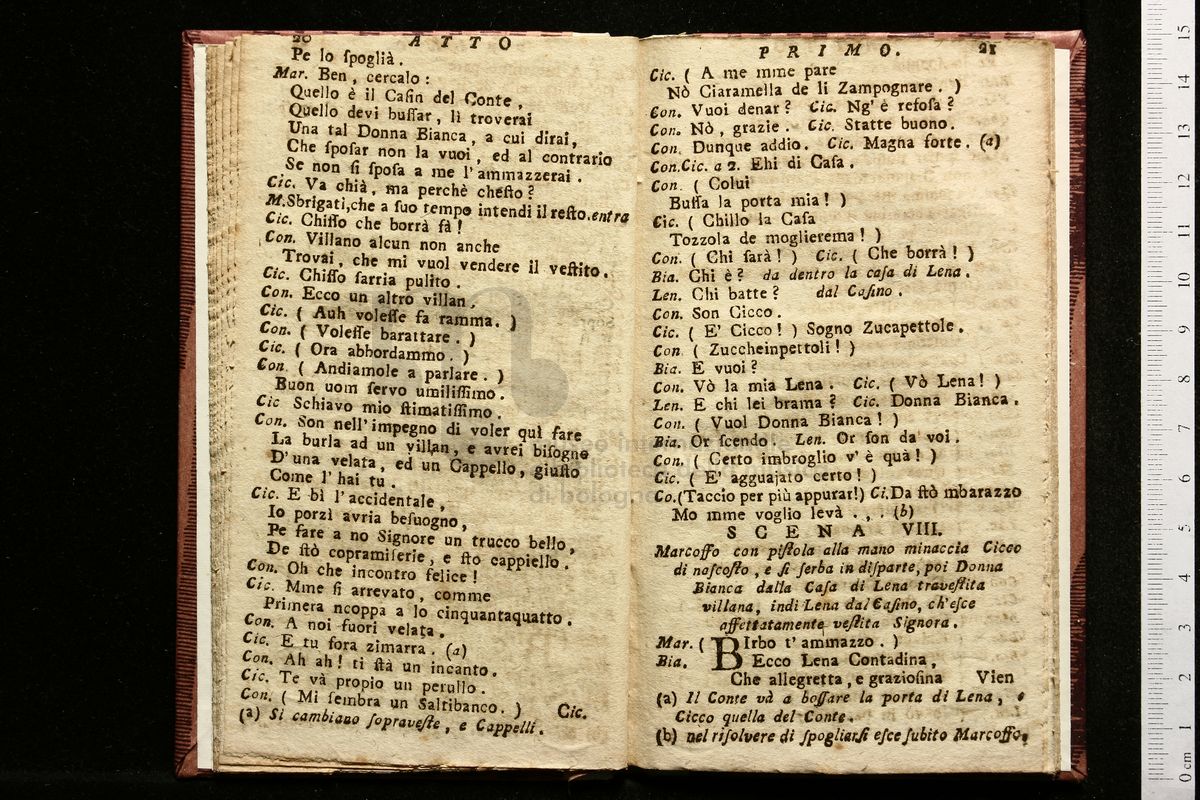 20 ATTO
Pe lo ſpoglià.
Mar. Ben, cercalo:
Quello è il Caſin del Conte,
Quello devi buſſar, lì troverai
Una tal Donna Bianca, a cui dirai,
Che ſpoſar non la vuoi, ed al contrario
Se non ſi ſpoſa a me l'ammazzerai.
Cic. Va chià, ma perchè cheſto?
M.Sbrigati,che a ſuo tempo intendi il reſto.entra
Cic. Chiſſo che borrà fà!
Con. Villano alcun non anche
Trovai, che mi vuol vendere il veſtito.
Cic. Chiſſo ſarria pulito.
Con. Ecco un altro villan.
Cic. ( Auh voleſſe fa ramma. )
Con. ( Voleſſe barattare. )
Cic. ( Ora abbordammo. )
Con. ( Andiamole a parlare. )
Buon uom ſervo umiliſſimo.
Cic Schiavo mio ſtimatiſſimo.
Con. Son nell'impegno di voler quì fare
La burla ad un villan, e avrei biſogno
D'una velata, ed un Cappello, giuſto
Come l'hai tu.
Cic. E bì l'accidentale,
Io porzì avria beſuogno,
Pe fare a no Signore un trucco bello,
De ſtò copramiſerie, e ſto cappiello.
Con. Oh che incontro felice!
Cic. Mme ſi arrevato, comme
Primera ncoppa a lo cinquantaquatto.
Con. A noi fuori velata.
Cic. E tu fora zimarra. (a)
Con. Ah ah! ti ſtà un incanto.
Cic. Te và propio un perullo.
Con. ( Mi ſembra un Saltibanco. )
Cic.
(a) Si cambiano ſopraveſte, e Cappelli.
PRIMO. 21
Cic. ( A me mme pare
Nò Ciaramella de li Zampognare. )
Con. Vuoi denar? Cic. Ng' è refoſa?
Con. Nò, grazie. Cic. Statte buono.
Con. Dunque addio. Cic. Magna forte. (a)
Con.Cic. a 2. Ehi di Caſa.
Con. ( Colui
Buſſa la porta mia! )
Cic. ( Chillo la Caſa
Tozzola de moglierema! )
Con. ( Chi ſarà! ) Cic. ( Che borrà! )
Bia. Chi è? da dentro la caſa di Lena.
Len. Chi batte? dal Caſino.
Con. Son Cicco.
Cic. ( E' Cicco! ) Sogno Zucapettole.
Con ( Zuccheinpettoli! )
Bia. E vuoi?
Con. Vò la mia Lena. Cic. ( Vò Lena! )
Len. E chi lei brama? Cic. Donna Bianca.
Con. ( Vuol Donna Bianca! )
Bia. Or ſcendo. Len. Or ſon da voi.
Con. ( Certo imbroglio v' è quà! )
Cic. ( E' agguajato certo! )
Co.(Taccio per più appurar!) Ci.Da ſtò mbarazzo
Mo mme voglio levà . , . (b)
SCENA VIII.
Marcoffo con piſtola alla mano minaccia Cicco
di naſcoſto, e ſi ſerba in diſparte, poi Donna
Bianca dalla Caſa di Lena traveſtita
villana, indi Lena dal Caſino, ch'eſce
affettatamente veſtita Signora.
Mar. ( BIrbo t'ammazzo. )
Bia. Ecco Lena Contadina,
Che allegretta, e grazioſina
Vien
(a) Il Conte và a boſſare la porta di Lena, e
Cicco quella del Conte.
(b) nel riſolvere di ſpogliarſi eſce ſubito Marcoffo.
15
14
13
12
11
10
9
8
7
6
5
4
3
2
1
0 cm